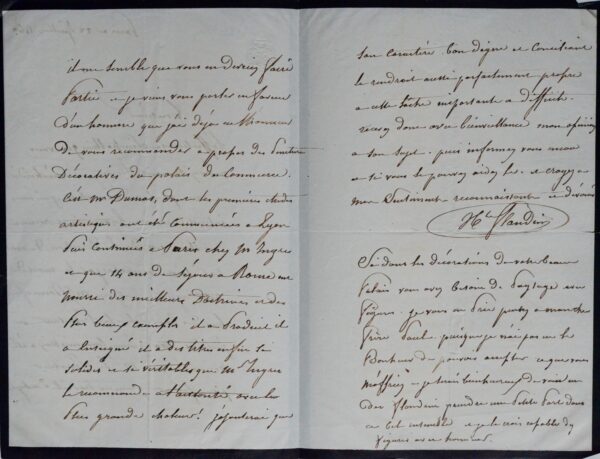 il me semble que vous en devriez faire
partie et je viens vous parler en faveur
d'un homme que j'ai déjà eu l'honneur
de vous recommander a propos des peintures
Décoratives du palais du Commerce.
C'est Mr Dumas, dont les premières études
artistiques ont été Commencées a Lyon
puis continuées a Paris chez Mr Ingres
et que 14 ans de séjour a Rome ont
nourri des meilleurs Doctrines et des
plus beaux exemples. il a produit il
a Enseigné il a des titres enfin si
solides et si véritables que Mr Ingres
le recommande avec la
plus grande chaleur! j'ajouterai que
son caractère bon digne et Conciliant
le rendroit aussi parfaitement propre
a cette tâche importante et difficile.
recevez donc avec bienveillance mon opinion
a son sujet. puis informez vous
si vous le pouvez aidez le. et croyez a
mes Sentiments reconnaissants et dévoués
Hte Flandrin
Si dans les décorations de votre beau
Palais vous avez besoin de paysage avec
figures je vous en prie pensez a mon cher
frère Paul. puisque je n'ai pas eu le
Bonheur de pouvoir accepter ce que vous
m'offriez je serai bien heureux de voir un
des Flandrin prendre une petite Part dans
ce bel ensemble et je le crois capable d'y
figurer avec honneur.